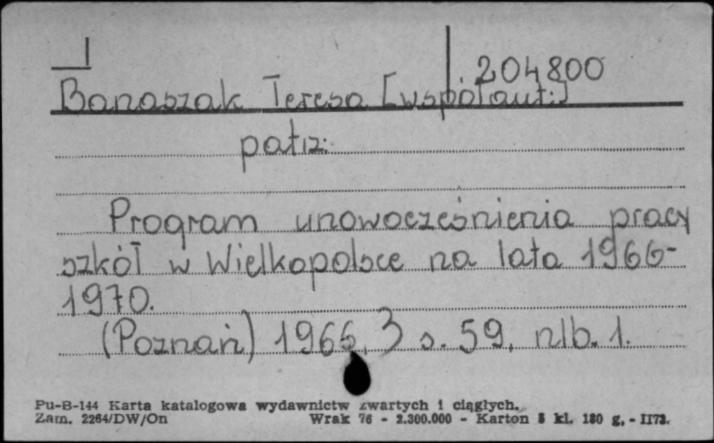 204800
Banaszak Teresa [współaut.]
patrz:
Program unowocześnienia pracy
szkół w Wielkopolsce na lata 1966-
1970.
(Poznań) 1966, s. 59, nlb. 1.
Pu-B-144 Karta katalogowa wydawnictw zwartych i ciągłych.
Zam. 2264/DW/On Wrak 76 - 2.300.000 - Karton kl. 180 g. - II73.